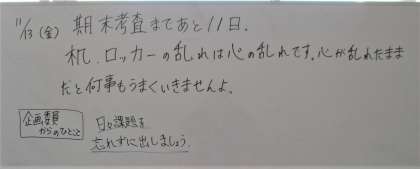 11/13(金) 期末考査まであと11日.
机、ロッカーの乱れは心の乱れです。心が乱れたまま
だと何事もうまくいきませんよ。
企画委員
からのひとこと
日々課題を
忘れずに出しましょう.